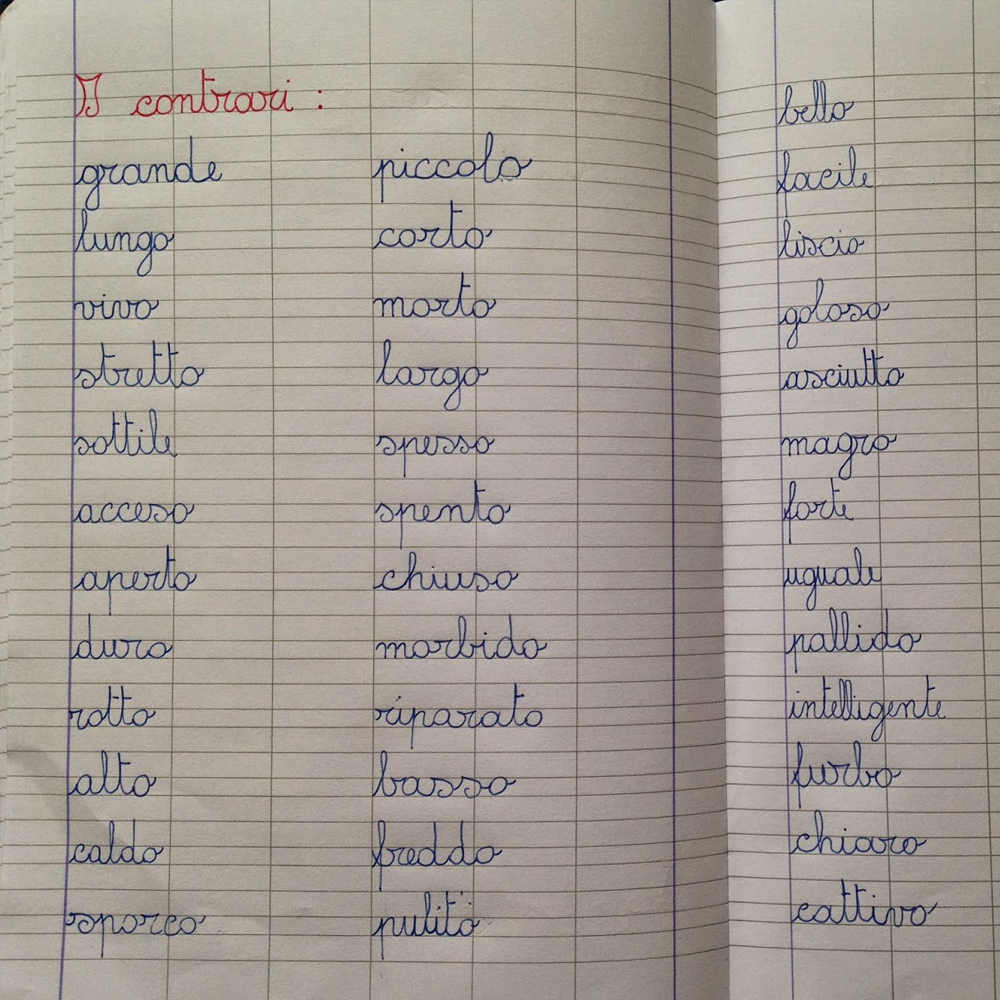 I contrari :
grande piccolo
lungo corto
vivo morto
stretto largo
sottile spesso
acceso spento
aperto chiuso
duro morbido
rotto riparato
alto basso
caldo freddo
sporco pulito
bello
facile
liscio
goloso
asciutto
magro
forte
uguale
pallido
intelligente
furbo
chiaro
cattivo